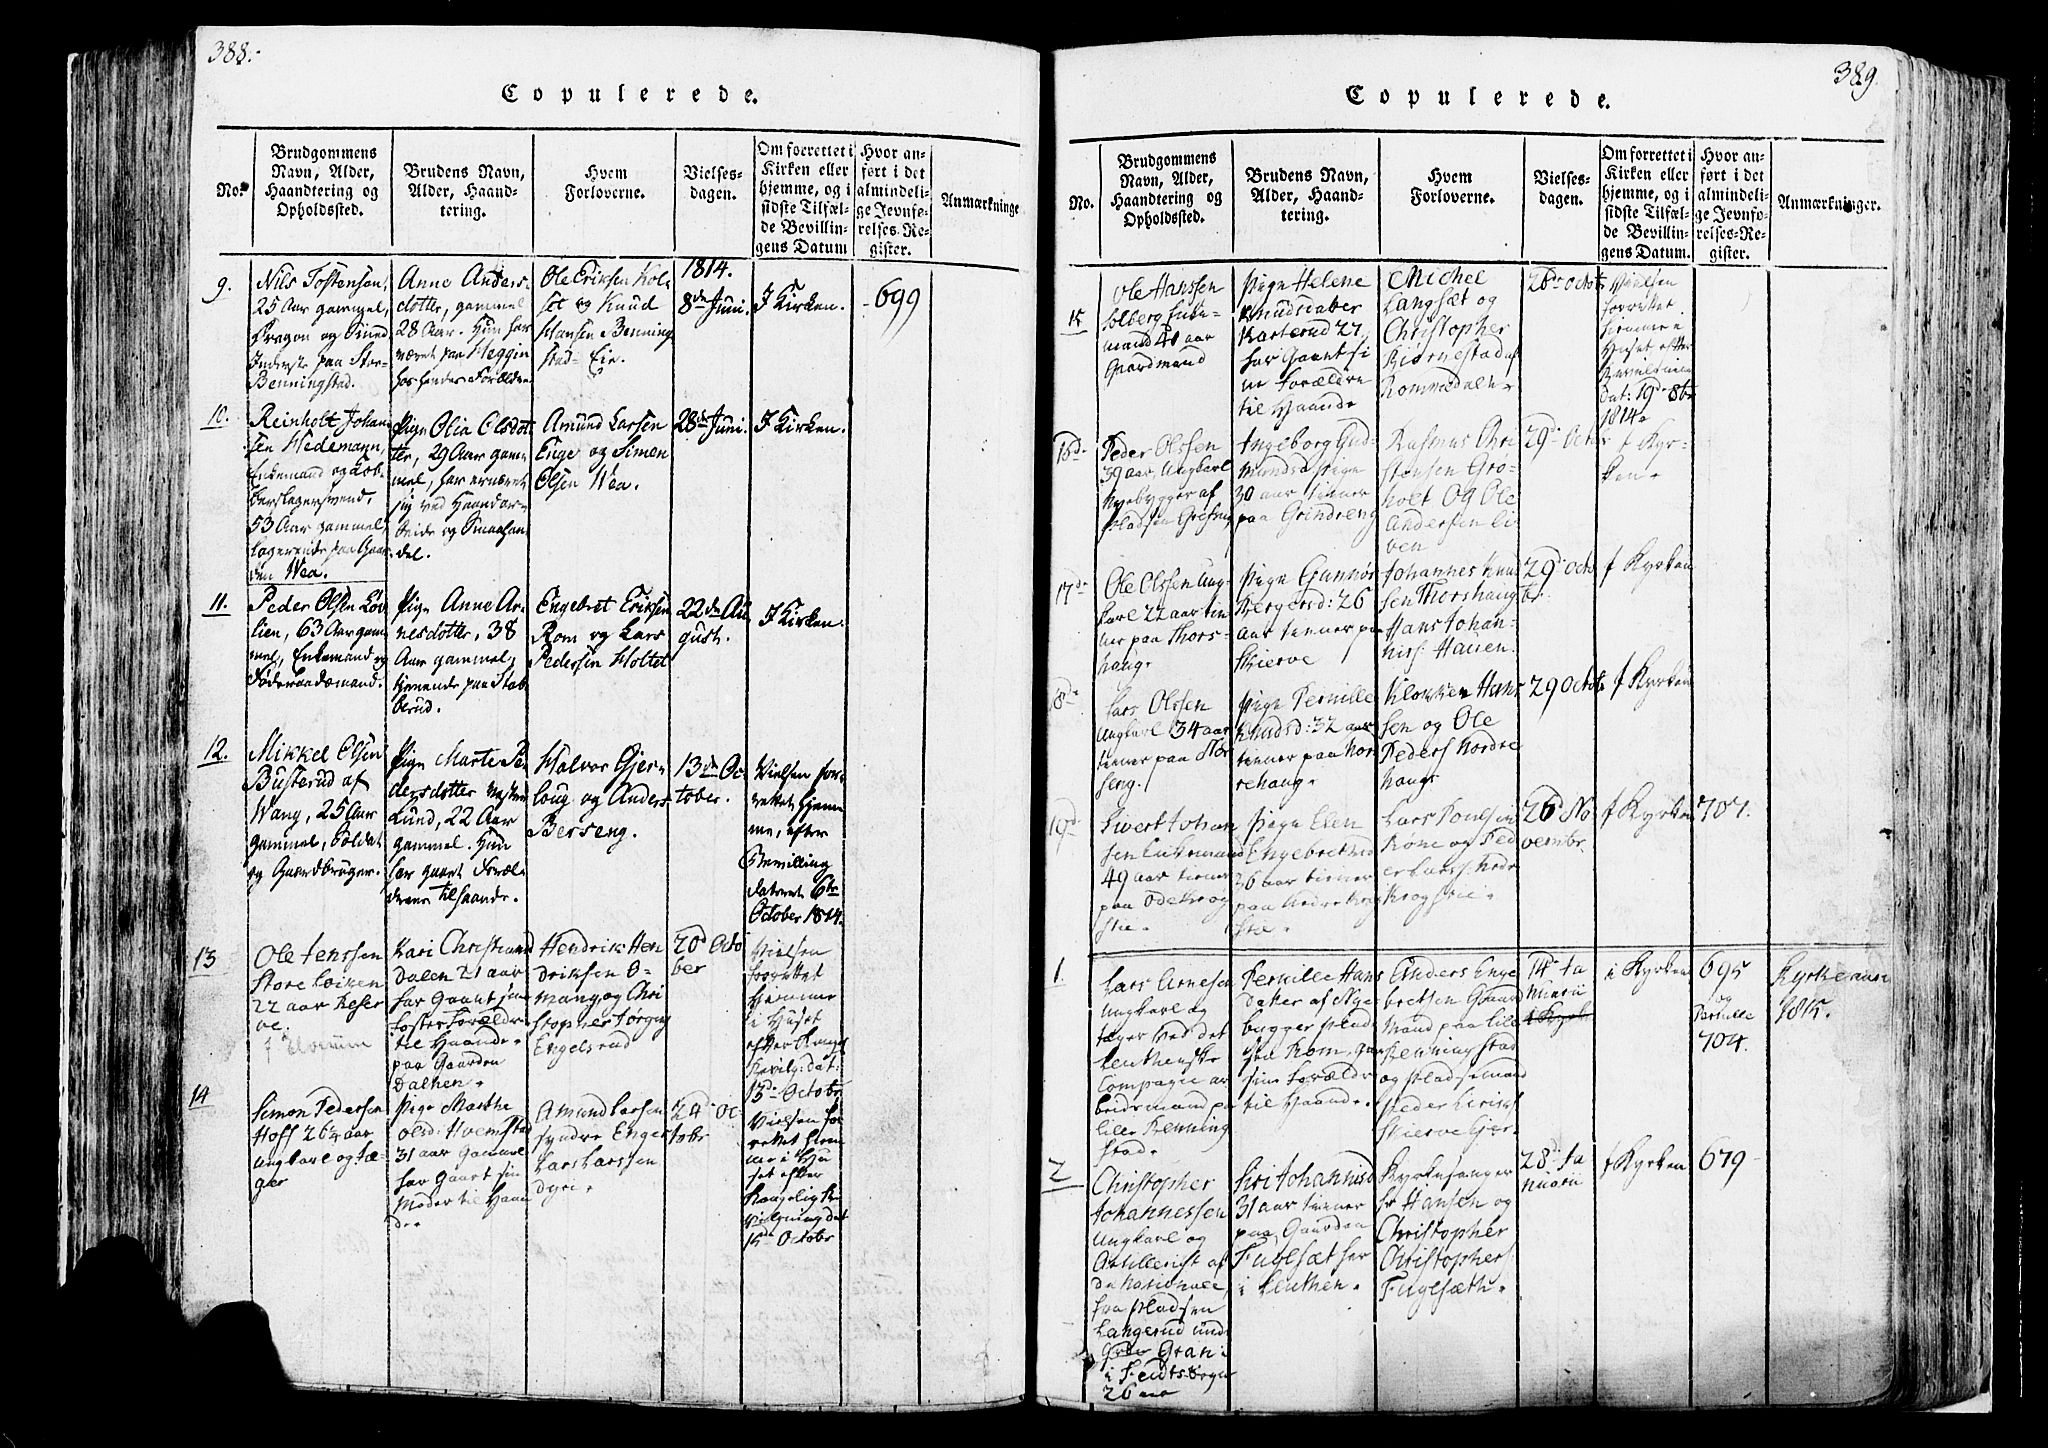 388.
Copulerede.
No.
Brudgommens
Navn, Alder,
Haandtering og
Opholdssted.
Brudens Navn,
Alder, Haand-
tering.
Hvem
Forloverne.
Vielses-
dagen.
Om forrettet i
Kirken eller
hjemme, og i
sidste Tilfæl-
de Bevillin-
gens Datum
Hvor an-
ført i det
almindeli-
ge Jevnfø-
relses-Re-
gister.
Anmærkninge
9.
Nils Tostensen,
25 Aar gammel,
Dragon og
Inderste paa Stor-
Benningstad.
Anne Anders-
dotter, gammel
28 Aar. Hun har
været paa Heggin
hos hendes Forældre.
Ole Eriksen Kol-
set og Knud
Hansen Benning-
stad-Eie.
1814.
8de Juni.
I Kirken.
699
10.
Reinholt Johan-
sen Hedemann,
Enkemand og
53 Aar gammel,
paa Gaar-
den Wea.
Pige Olia Olsdot-
ter, 29 Aar gam-
mel, har ernæret
sig ved Haandar-
beide og Smaahan-
del.
Amund Larsen
Enge og Simen
Olsen Wea.
28de Juni.
I Kirken.
11.
Peder Olsen Løv-
lien, 63 Aar gam-
mel, Enkemand og
Føderaadsmand.
Pige Anne Ar-
nesdotter, 38
Aar gammel,
tienende paa Stab-
berud.
Engebret Eriksen
Rom og Lars
Pedersen Holtet
22de Au-
gust.
I Kirken.
12.
Mikkel Olsen
Busterud af
Wang, 25 Aar
gammel, Soldat
og Gaardbruger.
Pige Marte Pe-
dersdotter
Lund, 22 Aar
gammel. Hun
har gaaet Foræl-
drene tilhaande.
Halvor Gjer-
loug og Anders
Berseng.
13de Oc-
tober.
Vielsen for-
rettet hjem-
me, efter
Bevilling
dateret 6te
October 1814.
13
Ole Jenssen
Store Loiken
22 aar Reser
ve.
f Elverum
Kari Christiansd
Dalen 21 aar
har Gaaet sin
Foster Forældre
til Haande.
paa Gaarden
Dalhen.
Hendrik Hen
driksen O-
mang og Chri
stopher Jørgen
Engelsrud
20d Octo
ber
Vielsen
forrettet
Hiemme
i Huset
efter Kongl
Bevilg: dat:
13de Octobr
14
Simon Pedersen
Hoff 26¼ aar
ungkarl og Jæ-
ger
Pige Marthe
Olsd: Hvemstad
31 aar Gammel
har Gaaet sin
Moder til Haan
de.
Amund Larsen
syndre Enger
Lars Larsen
dyri.
24de Oc
tobr
Vielsen for
rettet hiem
me i Hu
set efter
Kongelig Be
vilgning dat
15de Octobr
389.
Copulerede.
No.
Brudgommens
Navn, Alder,
Haandtering og
Opholdssted.
Brudens Navn,
Alder, Haand-
tering.
Hvem
Forloverne.
Vielses-
dagen.
Om forrettet i
Kirken eller
hjemme, og i
sidste Tilfæl-
de Bevillin-
gens Datum.
Hvor an-
ført i det
almindeli-
ge Jevnfø-
relses-Re-
gister.
Anmærkninger.
15
Ole Hanssen
Solberg Enke-
mand 40 aar
Gaardmand
Pige Helene
Knudsdater
Karterud 27
har Gaaet si
ne Forældre
til Haande
Michel
Langsæt og
Christopher
Biørnestad af
Rommedalen
26de Octob
Vielsen
forrettet
hiemme i
Huset efter
Bevilning
Dat: 19de 8br
1814.
16de
Peder Olssen
39 aar Ungkarl
Nyebygger af
Pladsen
Ingeborg Gud-
mundsd Pige
30 aar tiener
paa Grindreng
Rasmus Chri
stensen Grø-
holt Og Ole
Andersen Li
ven
29de Octob
f Kyr-
ken.
17de
Ole Olssen Ung-
karl 22 aar tie-
ner paa Thors-
haug.
Pige Gunnør
Bergersd: 26
aar tiener paa
Skierve
Johannes Knud
sen Thorshaug
Hans Johan-
niss: Hauen.
29de Octo
br.
f Kyrken
18de
Lars Olssen
Ungkarl 34 aar
tiener paa Stor
seng.
Pige Pernille
Knudsd: 32 aar
tiener paa Nor
rehaug.
Klokker Han
sen og Ole
Peders Nordre
haug.
29 Octob
f Kyrken
19de
Sivert Johan
sen Enkemand
49 aar tiener
paa Odekrog
stie.
Pige Elen
Engebretsd
36 aar tiener
paa Nordre Krog
stie.
Lars Poulsen
Røne og Ped
er Larss Nordr
Krogstie.
26d No
vembr.
f Kyrken
707.
1.
Lars Arnesen
Ungkarl og
Jæger ved det
Leuthenske
Compagnie ar
beidsmand paa
lille Benning
stad.
Pernille Hans
dater af Nye
bygger Plad
sen Rom, Gaaet
sine Forældre
til Haande.
Anders Enge
bretsen Gaard
Mand paa Lille
Benningstad
og Pladsemand
Peder Erichs
Skierve Ejer.
14de Ja
nuarii
i Kyrken
i Kyrken
695
og
Pernille
704.
Kyrkeaar
1815.
2
Christopher
Johannessen
Ungkarl og
Artillerist af
de Nationale
fra Pladsen
Langerud und
Gran
i Feidtsbøgn
26 aar
Siri Johannisd
31 aar tiener
paa Gaarden
Fuglsæt her
i Leuthen.
Kyrkesanger
Hr Hansen og
Christopher
Christophers:
Fuglsæth.
28de Ja
nuarii
f Kyrken
679